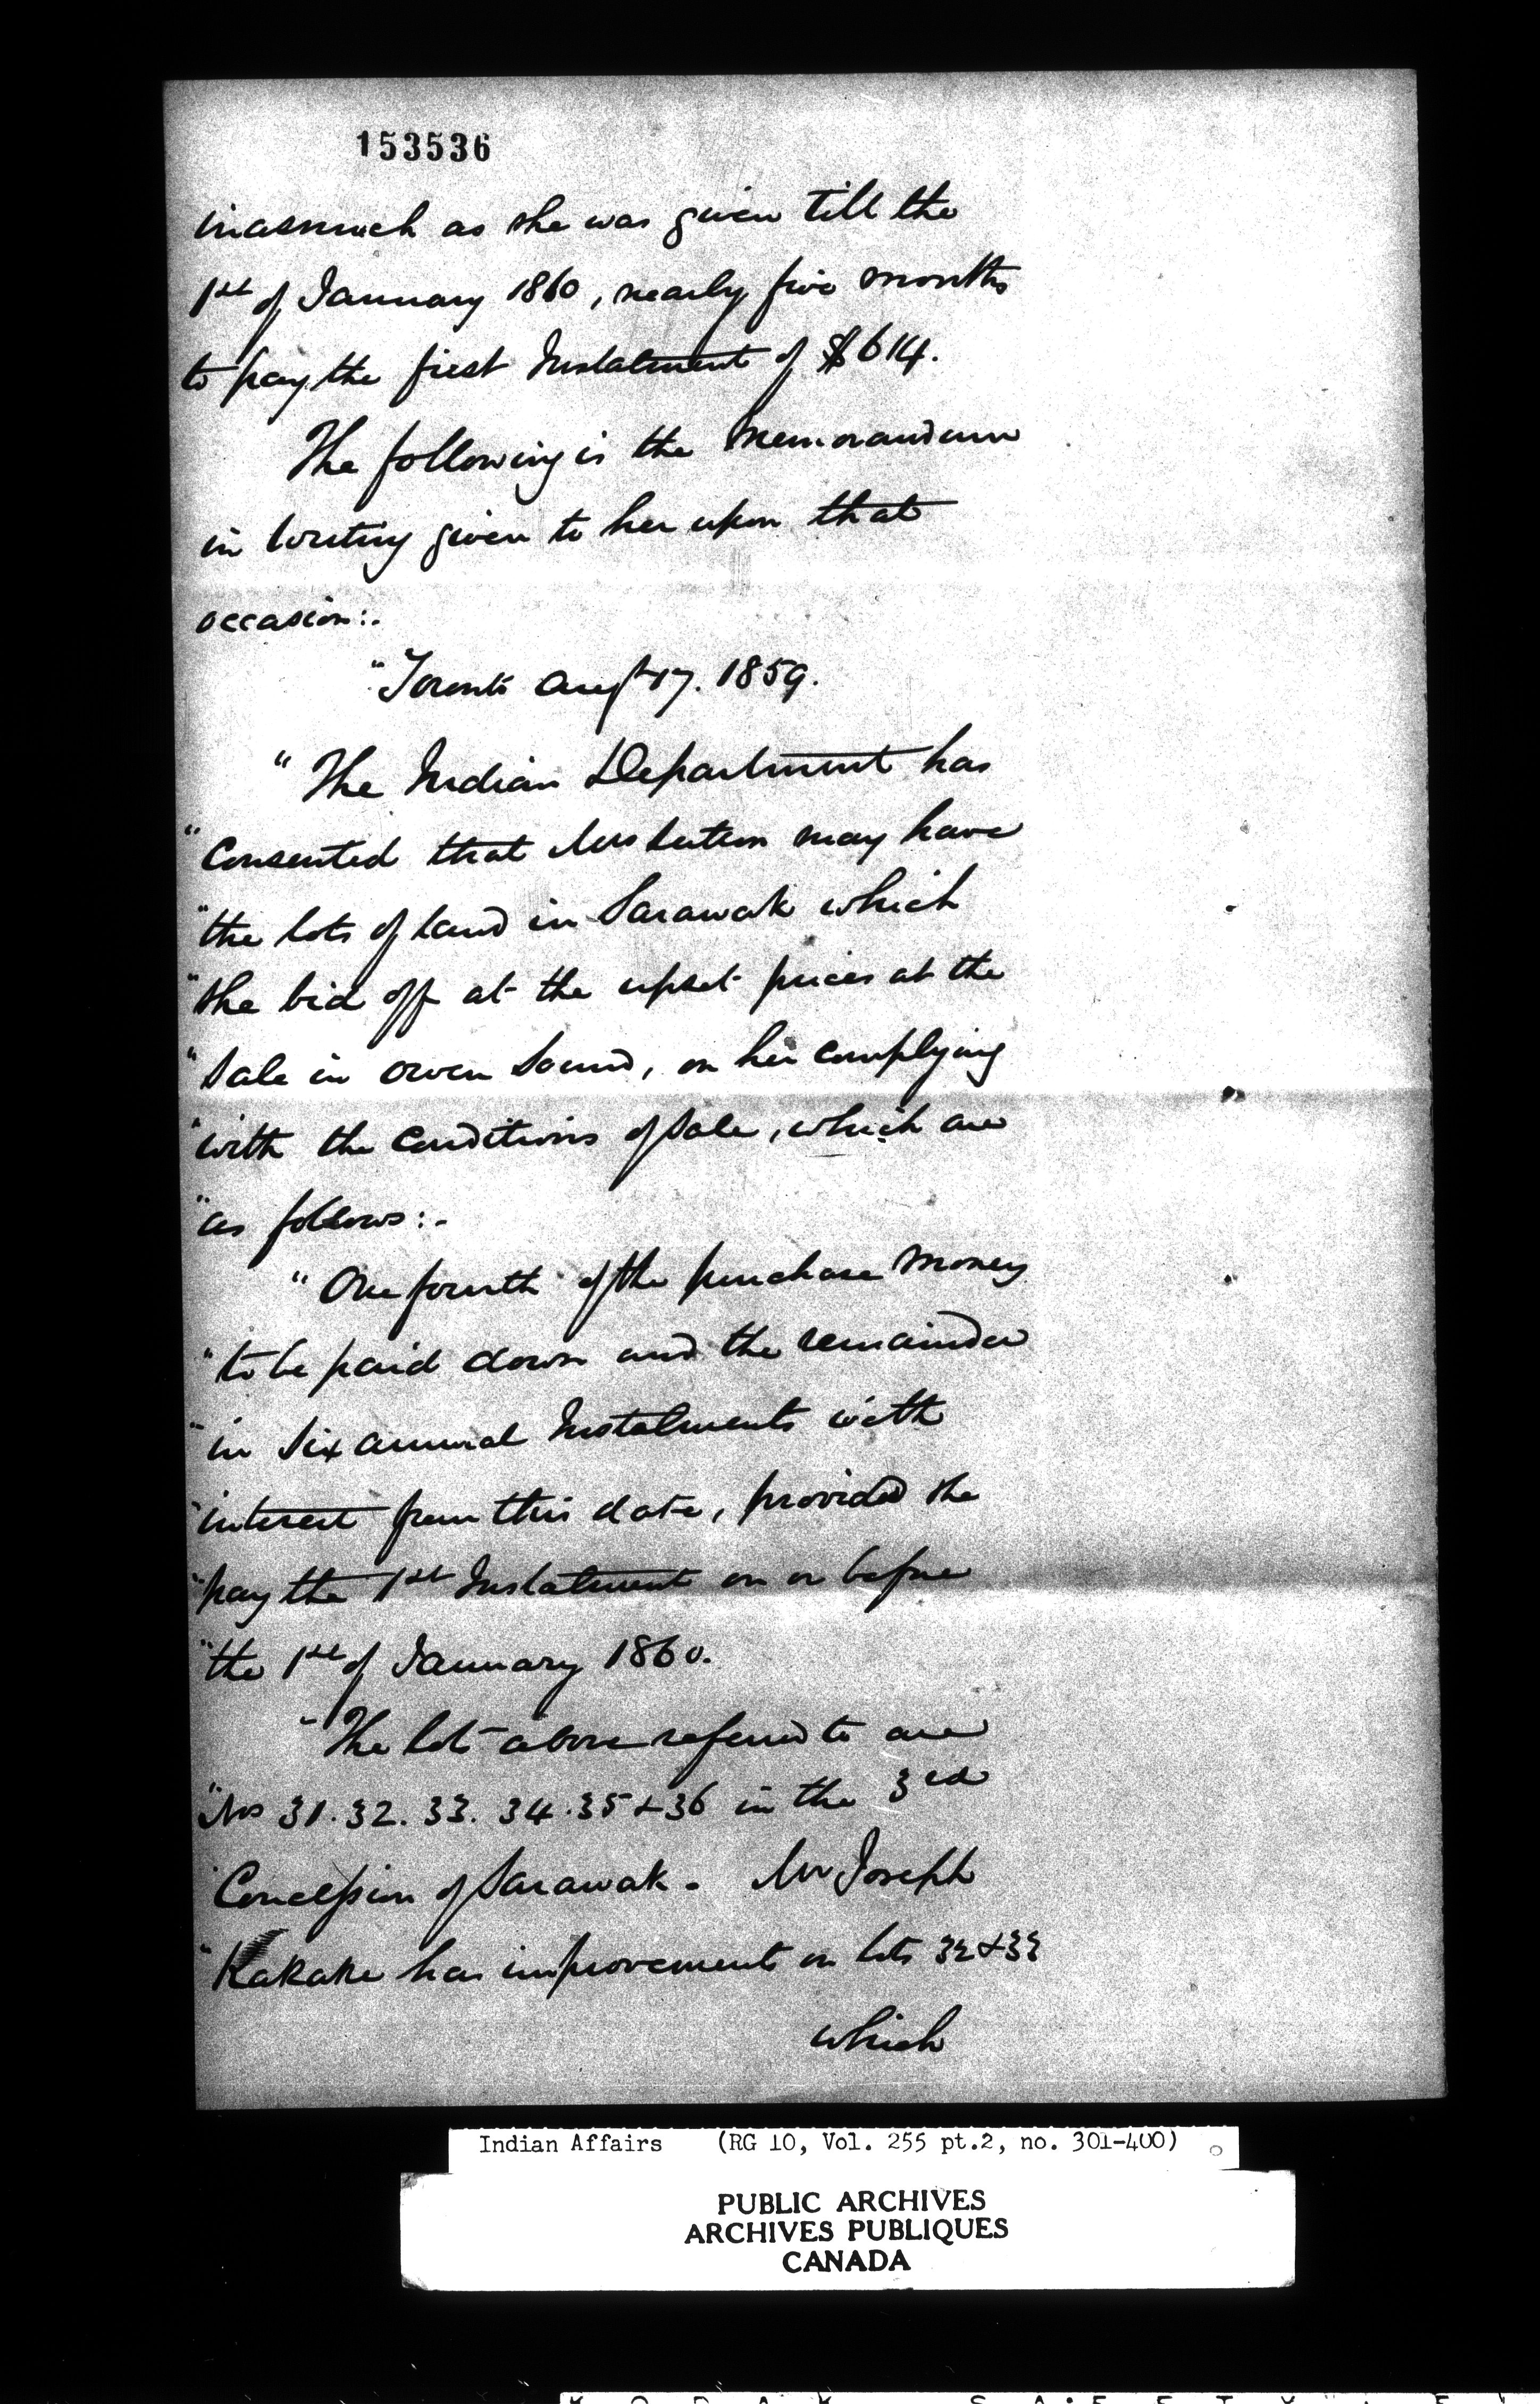 153536
inasmuch as she was given till the
1st of January 1860, nearly five months
to pay the first Instalment of $614.
The following is the Memorandum
in writing given to her upon that
occasion:.
"Toronto Augt 17. 1859.
"The Indian Department has
"Consented that Mrs Sutton may have
"the lots of land in Sarawak which
"she bid off at the upset prices at the
"Sale in Owen Sound, on her complying
"with the Conditions of Sale, which are
"as follows:-
"One fourth of the purchase money
"to be paid down and the remainder
"in Six annual Instalments with
"interest from this date, provided she
"pay the 1st Instalment on or before
"the 1st of January 1860.
"The lots above referred to are
"Nos 31. 32. 33. 34. 35 & 36 in the 3rd
"Concession of Sarawak. Mr Joseph
"Kakake has improvements on lots 32 & 33
which
Indian Affairs (RG 10, Vol. 255 pt.2, no. 301-400)
PUBLIC ARCHIVES
ARCHIVES PUBLIQUES
CANADA